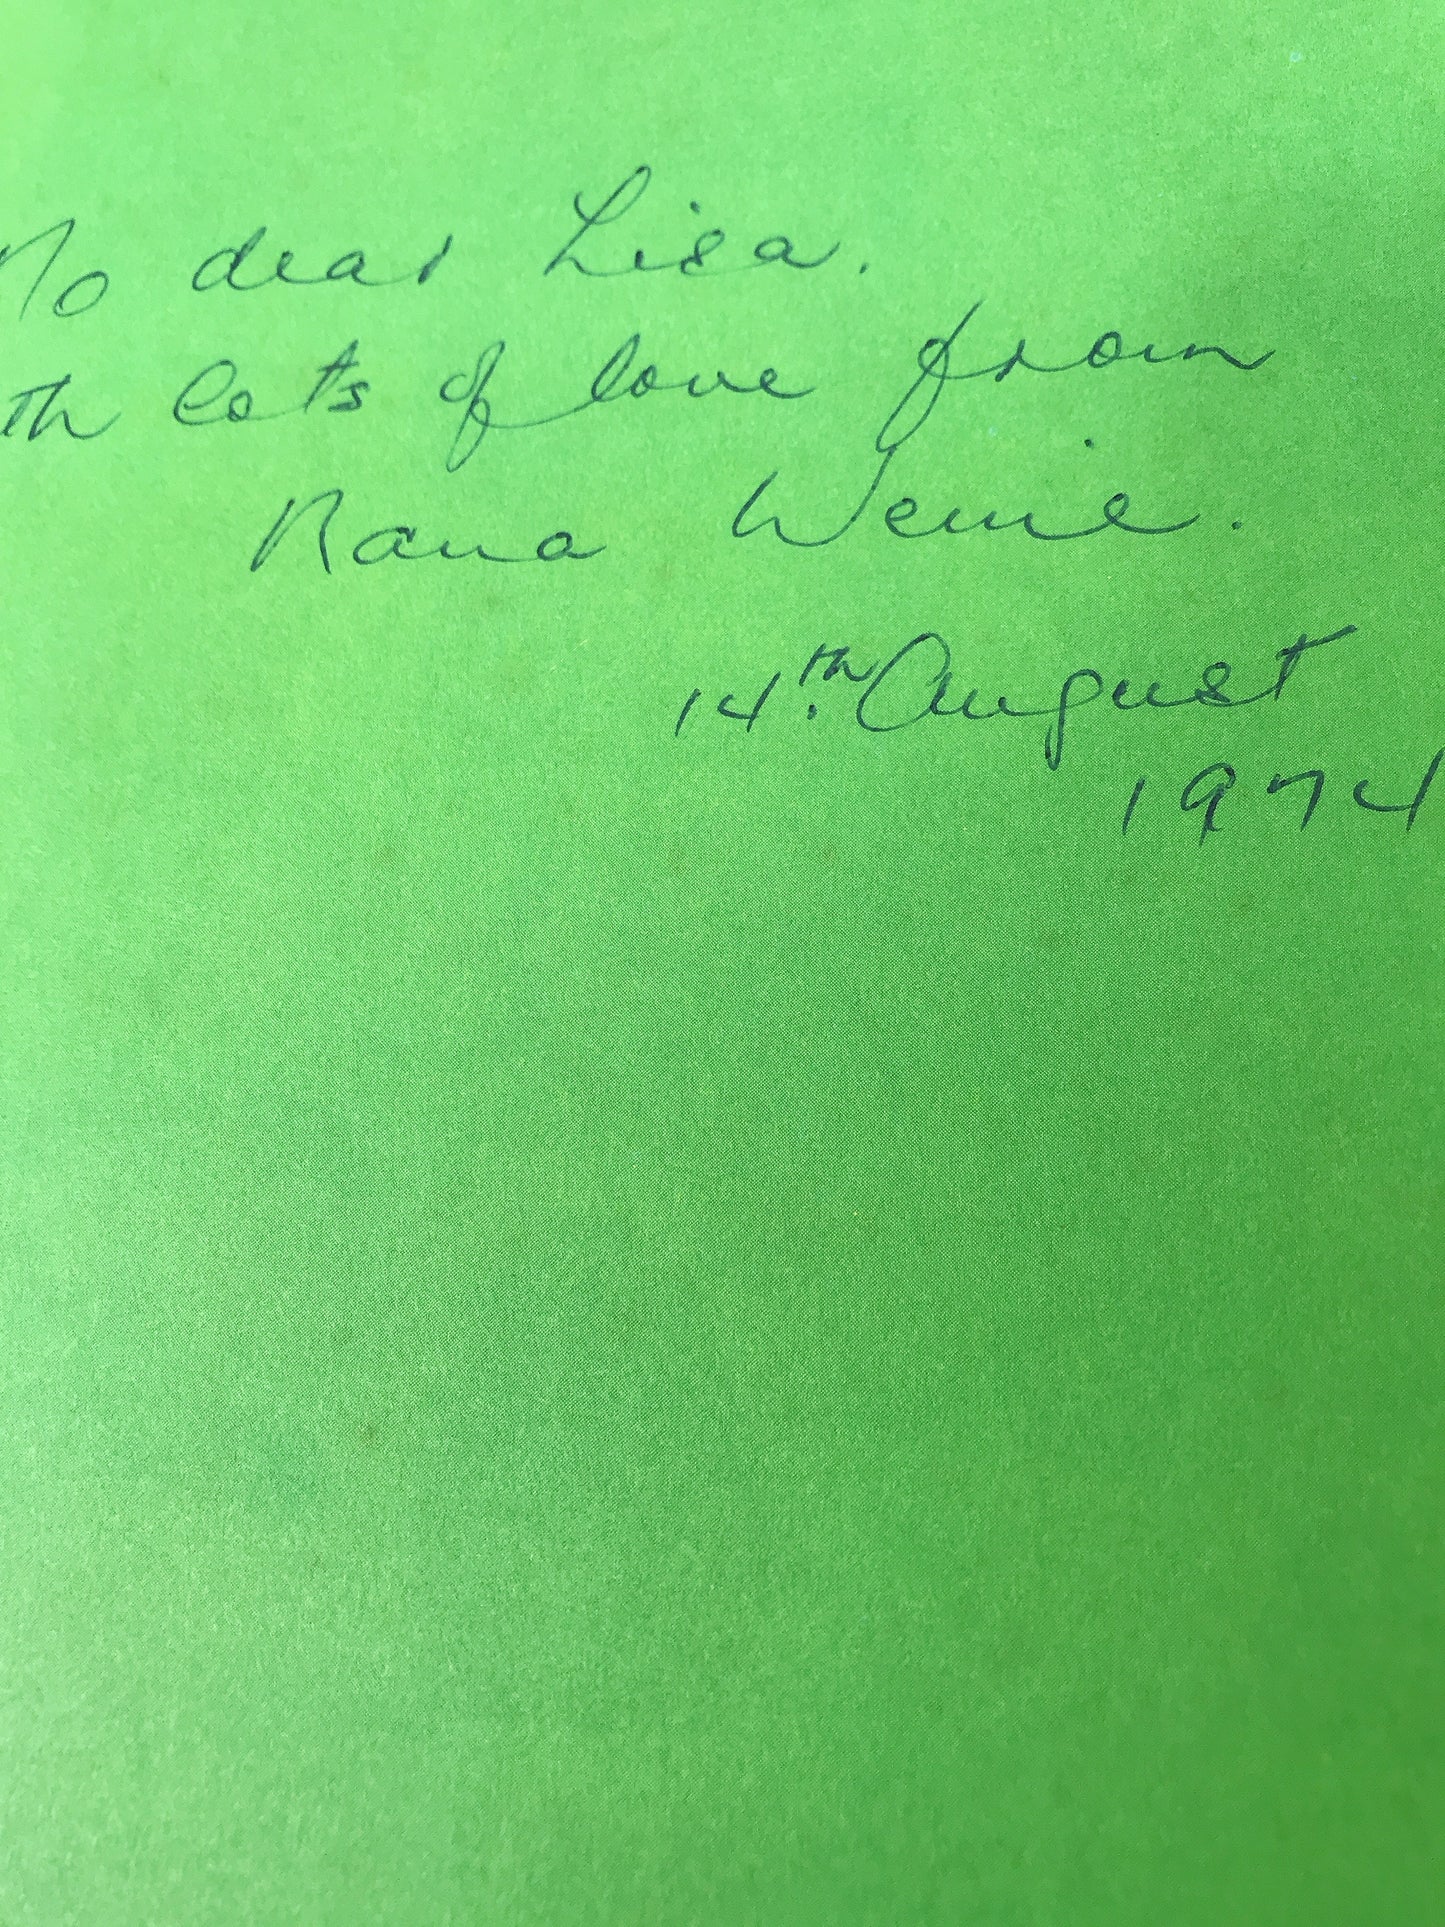 To dear Lisa.
th lots of love from
Nana
14th August
1974